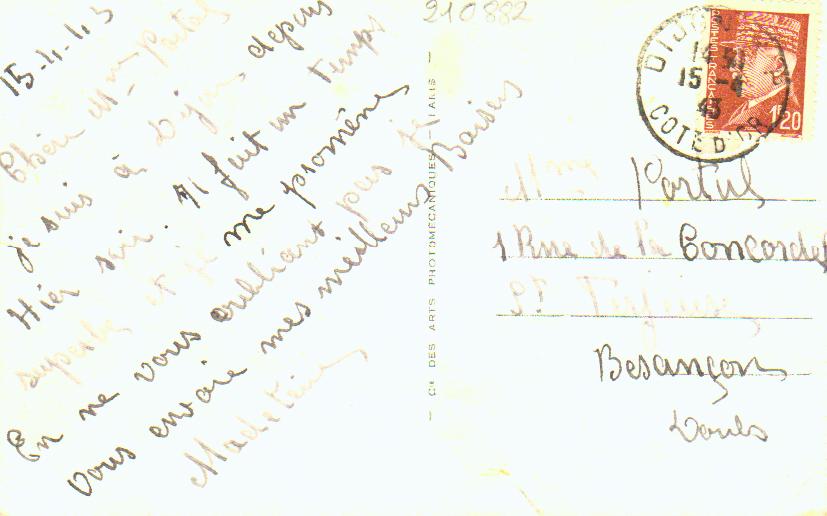 15-4-43
Chère Mme Portal
je suis à Dijon depuis
Hier soir. Il fait un temps
superbe et je me promène
En ne vous oubliant pas je
vous envoie mes meilleurs Baisers
Madeleine
210882
— Cie DES ARTS PHOTOMÉCANIQUES — PARIS —
DIJON
15 -4
43
COTE D'OR
POSTES FRANÇAISES
1F20
Mme Portal
1 Rue de la Concorde
St
Besançon
Doubs